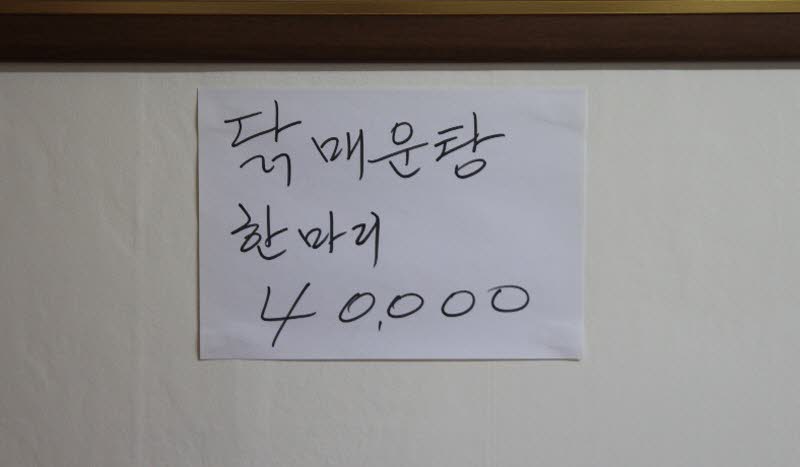 닭매운탕
한마리
40,000